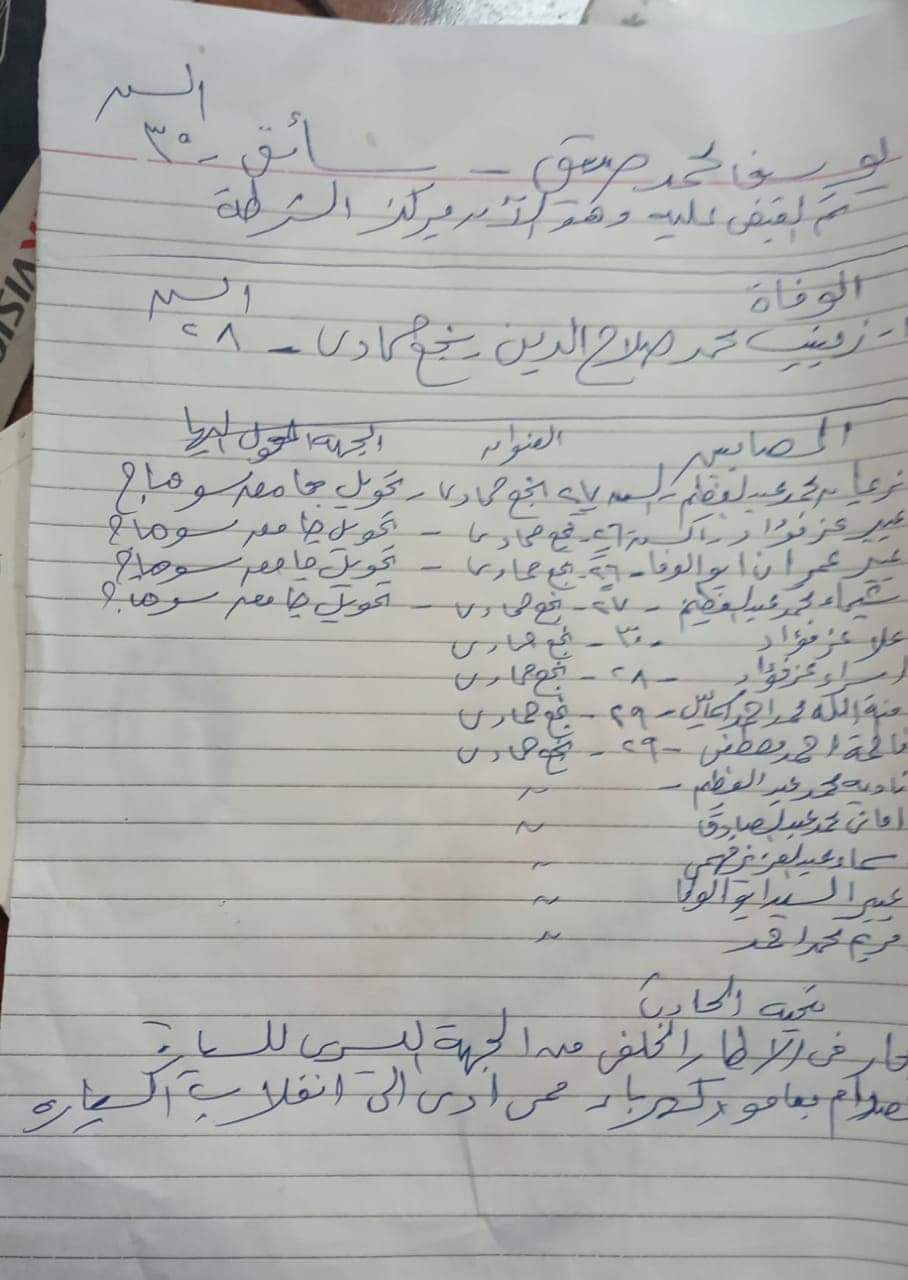 السن
يوسف محمد صديق - سائق - ٣٥
تم القبض عليه وهو الآن بمركز الشرطة
الوفاة السن
١- زينب محمد صلاح الدين - نجع حمادى - ٢٨
المصابين العنوان الجهة المحول إليها
محمد عبدالعظيم - السن ٢٧ نجع حمادى - تحويل جامعة سوهاج
عبير عزفؤاد - السن ٢٦ - نجع حمادى - تحويل جامعة سوهاج
عبير عمران ابوالوفا - ٢٦ - نجع حمادى - تحويل جامعة سوهاج
شيماء محمد عبدالعظيم - ٢٧ - نجع حمادى - تحويل جامعة سوهاج
علا عزفؤاد - ٣٠ - نجع حمادى
اسراء عزفؤاد - ٢٨ - نجع حمادى
منة الله محمد احمد - ٢٩ - نجع حمادى
احمد مصطفى - ٢٩ - نجع حمادى
نادية محمد عبد العظيم - "
امانى محمد عبدالصادق "
عبدالعزيز فهمى "
عبير السيد ابو الوفا "
مريم محمد احمد "
نتيجة الحادث
فى الاطار الخلفى من الجهة اليسرى للسيارة
بعامود كهرباء مما ادى الى انقلاب السيارة